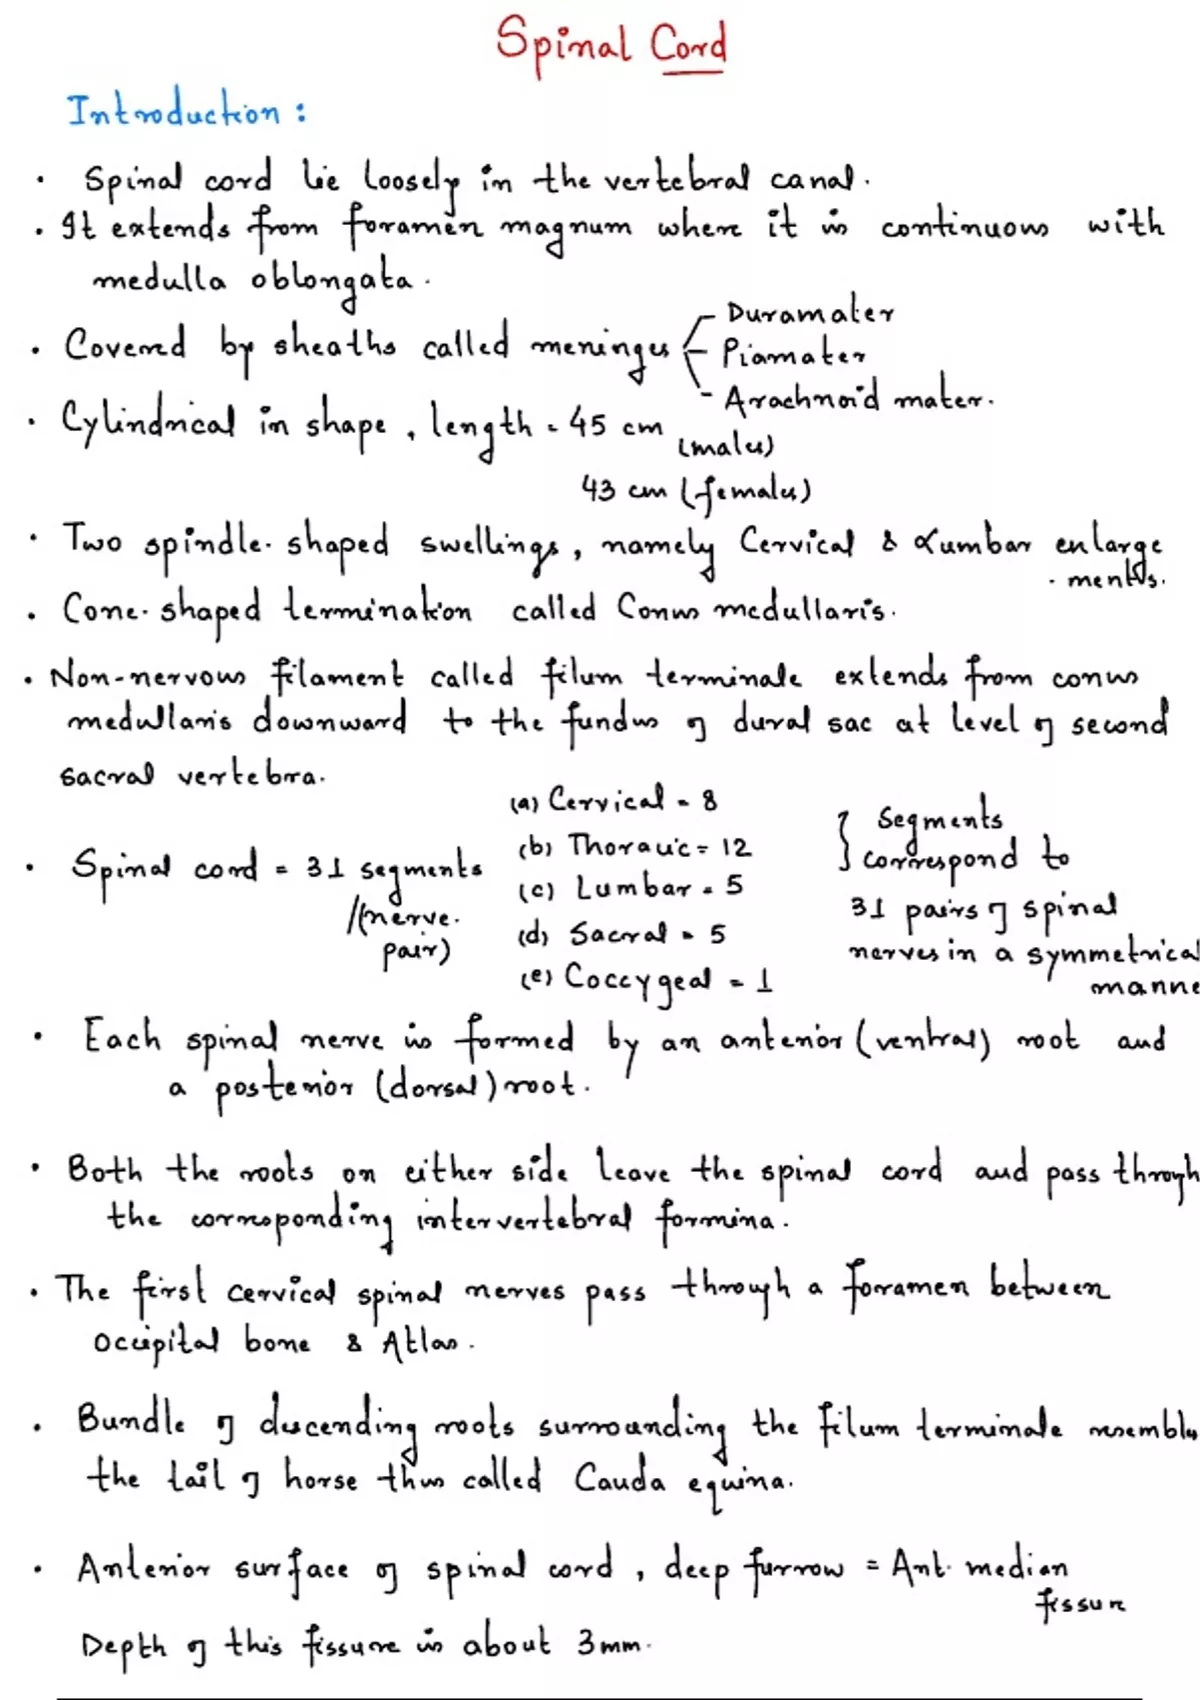 Spinal Cord
Introduction :
• Spinal cord lie loosely in the vertebral canal.
• It extends from foramen magnum where it is continuous with
medulla oblongata.
• Covered by sheaths called meninges
Duramater
Piamater
Arachnoid mater.
• Cylindrical in shape, length = 45 cm
(males)
43 cm (females)
• Two spindle-shaped swellings, namely Cervical & Lumbar enlarge
-ments.
• Cone-shaped termination called Conus medullaris.
• Non-nervous filament called filum terminale extends from conus
medullaris downward to the fundus of dural sac at level of second
sacral vertebra.
• Spinal cord = 31 segments
/(nerve.
pair)
(a) Cervical = 8
(b) Thoracic = 12
(c) Lumbar = 5
(d) Sacral = 5
(e) Coccygeal = 1
} Segments
correspond to
31 pairs of spinal
nerves in a symmetrical
manne
• Each spinal nerve is formed by an anterior (ventral) root and
a posterior (dorsal) root.
• Both the roots on either side leave the spinal cord and pass through
the corresponding intervertebral formina.
• The first cervical spinal nerves pass through a foramen between
occipital bone & Atlas.
• Bundle of descending roots surrounding the filum terminale resembles
the tail of horse thus called Cauda equina.
• Anterior surface of spinal cord, deep furrow = Ant. median
fissure
Depth of this fissure is about 3mm.